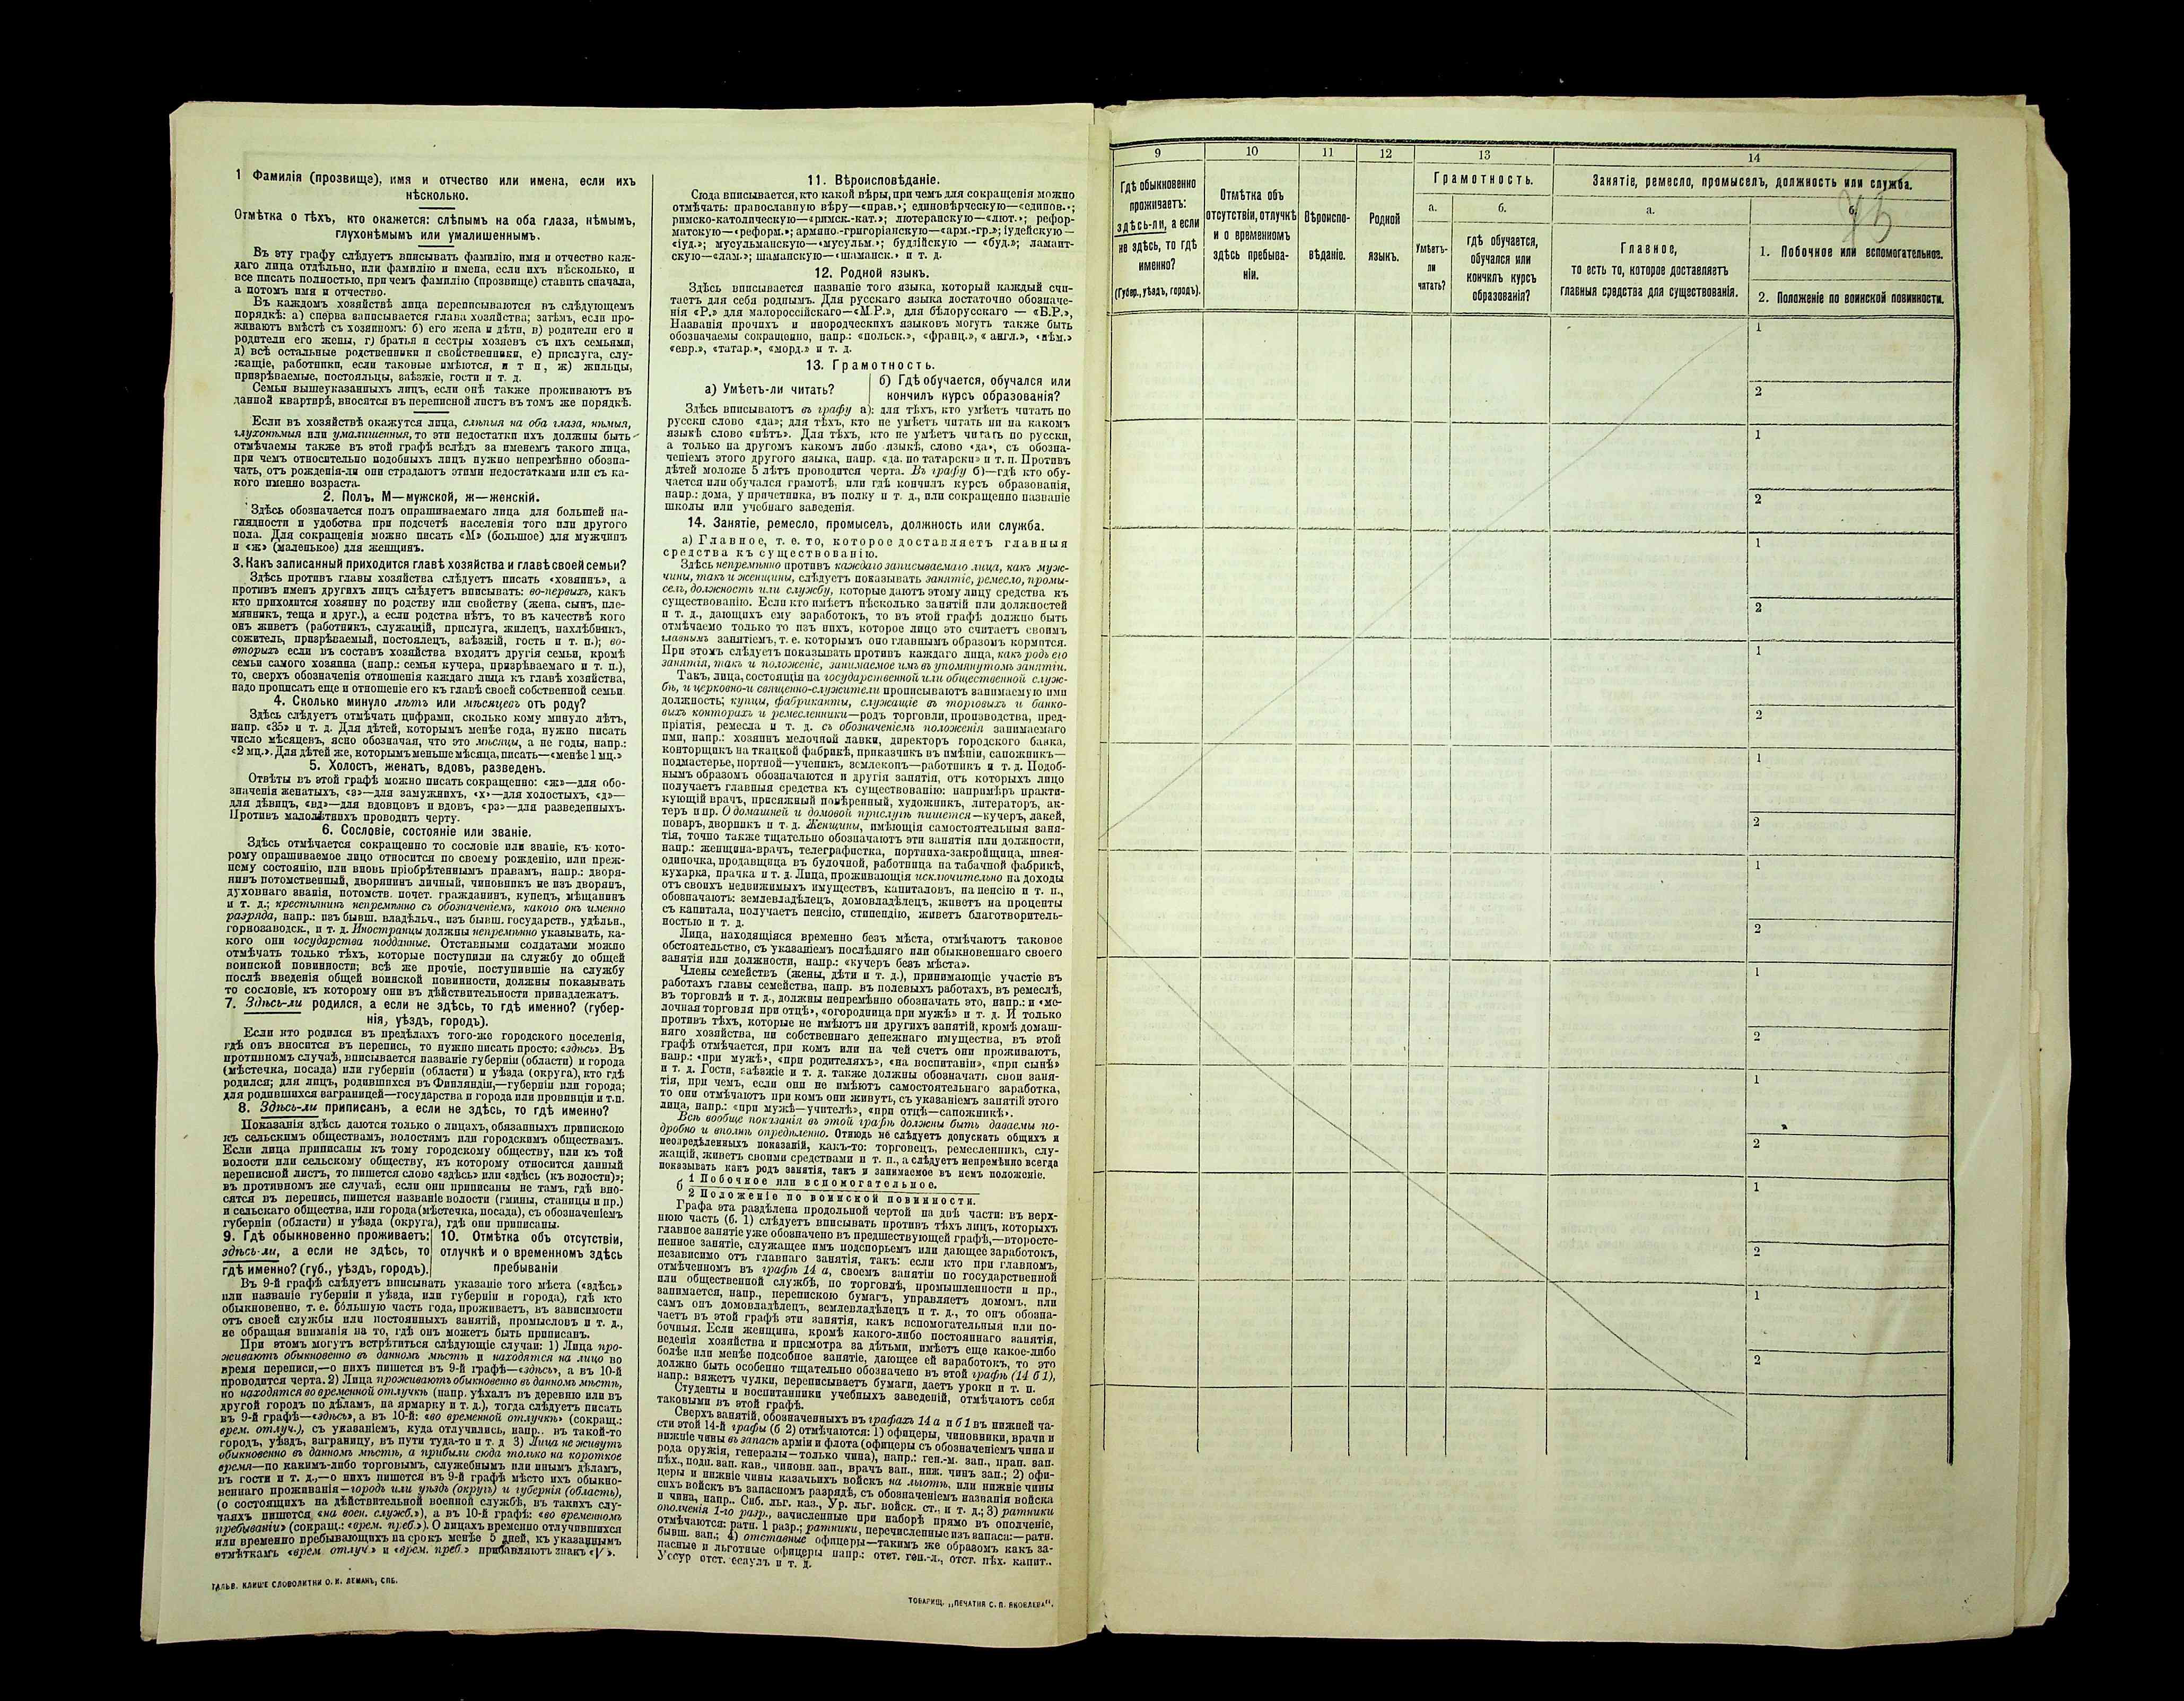 1 Фамилія (прозвище), имя и отчество или имена, если ихъ
нѣсколько.
Отмѣтка о тѣхъ, кто окажется: слѣпымъ на оба глаза, нѣмымъ,
глухонѣмымъ или умалишеннымъ.
Въ эту графу слѣдуетъ вписывать фамилію, имя и отчество каж-
даго лица отдѣльно, или фамилію и имена, если ихъ нѣсколько, и
все писать полностью, при чемъ фамилію (прозвище) ставить сначала,
а потомъ имя и отчество.
Въ каждомъ хозяйствѣ лица переписываются въ слѣдующемъ
порядкѣ: а) сперва записывается глава хозяйства; затѣмъ, если про-
живаютъ вмѣстѣ съ хозяиномъ: б) его жена и дѣти, в) родители его и
родители его жены, г) братья и сестры хозяевъ съ ихъ семьями,
д) всѣ остальные родственники и свойственники, е) прислуга, слу-
жащіе, работники, если таковые имѣются, и т п, ж) жильцы,
призрѣваемые, постояльцы, заѣзжіе, гости и т. д.
Семьи вышеуказанныхъ лицъ, если онѣ также проживаютъ въ
данной квартирѣ, вносятся въ переписной листъ въ томъ же порядкѣ.
Если въ хозяйствѣ окажутся лица, слѣпыя на оба глаза, нѣмыя,
глухонѣмыя или умалишенныя, то эти недостатки ихъ должны быть
отмѣчаемы также въ этой графѣ вслѣдъ за именемъ такого лица,
при чемъ относительно подобныхъ лицъ нужно непремѣнно обозна-
чать, отъ рожденія-ли они страдаютъ этими недостатками или съ ка-
кого именно возраста.
2. Полъ. М—мужской, ж—женскій.
Здѣсь обозначается полъ опрашиваемаго лица для большей на-
глядности и удобства при подсчетѣ населенія того или другого
пола. Для сокращенія можно писать «М» (большое) для мужчинъ
и «ж» (маленькое) для женщинъ.
3. Какъ записанный приходится главѣ хозяйства и главѣ своей семьи?
Здѣсь противъ главы хозяйства слѣдуетъ писать «хозяинъ», а
противъ именъ другихъ лицъ слѣдуетъ вписывать: во-первыхъ, какъ
кто приходится хозяину по родству или свойству (жена, сынъ, пле-
мянникъ, теща и друг.), а если родства нѣтъ, то въ качествѣ кого
онъ живетъ (работникъ, служащій, прислуга, жилецъ, нахлѣбникъ,
сожитель, призрѣваемый, постоялецъ, заѣзжій, гость и т. п.); во-
вторыхъ если въ составъ хозяйства входятъ другія семьи, кромѣ
семьи самого хозяина (напр.: семья кучера, призрѣваемаго и т. п.),
то, сверхъ обозначенія отношенія каждаго лица къ главѣ хозяйства,
надо прописать еще и отношеніе его къ главѣ своей собственной семьи.
4. Сколько минуло лѣтъ или мѣсяцевъ отъ роду?
Здѣсь слѣдуетъ отмѣчать цифрами, сколько кому минуло лѣтъ,
напр. «35» и т. д. Для дѣтей, которымъ менѣе года, нужно писать
число мѣсяцевъ, ясно обозначая, что это мѣсяцы, а не годы, напр.:
«2 мц.». Для дѣтей же, которымъ меньше мѣсяца, писать—«менѣе 1 мц.»
5. Холостъ, женатъ, вдовъ, разведенъ.
Отвѣты въ этой графѣ можно писать сокращенно: «ж»—для обо-
значенія женатыхъ, «з»—для замужнихъ, «х»—для холостыхъ, «д»—
для дѣвицъ, «вд»—для вдовцовъ и вдовъ, «рз»—для разведенныхъ.
Противъ малолѣтнихъ проводить черту.
6. Сословіе, состояніе или званіе.
Здѣсь отмѣчается сокращенно то сословіе или званіе, къ кото-
рому опрашиваемое лицо относится по своему рожденію, или преж-
нему состоянію, или вновь пріобрѣтеннымъ правамъ, напр.: дворя-
нинъ потомственный, дворянинъ личный, чиновникъ не изъ дворянъ,
духовнаго званія, потомств. почет. гражданинъ, купецъ, мѣщанинъ
и т. д.; крестьянинъ непремѣнно съ обозначеніемъ, какого онъ именно
разряда, напр.: изъ бывш. владѣльч., изъ бывш. государств., удѣльн.,
горнозаводск., и т. д. Иностранцы должны непремѣнно указывать, ка-
кого они государства подданные. Отставными солдатами можно
отмѣчать только тѣхъ, которые поступили на службу до общей
воинской повинности; всѣ же прочіе, поступившіе на службу
послѣ введенія общей воинской повинности, должны показывать
то сословіе, къ которому они въ дѣйствительности принадлежатъ.
7. Здѣсь-ли родился, а если не здѣсь, то гдѣ именно? (губер-
нія, уѣздъ, городъ).
Если кто родился въ предѣлахъ того-же городского поселенія,
гдѣ онъ вносится въ перепись, то нужно писать просто: «здѣсь». Въ
противномъ случаѣ, вписывается названіе губерніи (области) и города
(мѣстечка, посада) или губерніи (области) и уѣзда (округа), кто гдѣ
родился; для лицъ, родившихся въ Финляндіи,—губерніи или города;
для родившихся заграницей—государства и города или провинціи и т.п.
8. Здѣсь-ли приписанъ, а если не здѣсь, то гдѣ именно?
Показанія здѣсь даются только о лицахъ, обязанныхъ припискою
къ сельскимъ обществамъ, волостямъ или городскимъ обществамъ.
Если лица приписаны къ тому городскому обществу, или къ той
волости или сельскому обществу, къ которому относится данный
переписной листъ, то пишется слово «здѣсь» или «здѣсь (къ волости)»;
въ противномъ же случаѣ, если они приписаны не тамъ, гдѣ вно-
сятся въ перепись, пишется названіе волости (гмины, станицы и пр.)
и сельскаго общества, или города (мѣстечка, посада), съ обозначеніемъ
губерніи (области) и уѣзда (округа), гдѣ они приписаны.
9. Гдѣ обыкновенно проживаетъ:
здѣсь-ли, а если не здѣсь, то
гдѣ именно? (губ., уѣздъ, городъ).
10. Отмѣтка объ отсутствіи,
отлучкѣ и о временномъ здѣсь
пребываніи
Въ 9-й графѣ слѣдуетъ вписывать указаніе того мѣста («здѣсь»
или названіе губерніи и уѣзда, или губерніи и города), гдѣ кто
обыкновенно, т. е. бо́льшую часть года, проживаетъ, въ зависимости
отъ своей службы или постоянныхъ занятій, промысловъ и т. д.,
не обращая вниманія на то, гдѣ онъ можетъ быть приписанъ.
При этомъ могутъ встрѣтиться слѣдующіе случаи: 1) Лица про-
живаютъ обыкновенно въ данномъ мѣстѣ и находятся на лицо во
время переписи,—о нихъ пишется въ 9-й графѣ—«здѣсь», а въ 10-й
проводится черта. 2) Лица проживаютъ обыкновенно въ данномъ мѣстѣ,
но находятся во временной отлучкѣ (напр. уѣхалъ въ деревню или въ
другой городъ по дѣламъ, на ярмарку и т. д.), тогда слѣдуетъ писать
въ 9-й графѣ—«здѣсь», а въ 10-й: «во временной отлучкѣ» (сокращ.:
врем. отлуч.), съ указаніемъ, куда отлучились, напр.. въ такой-то
городъ, уѣздъ, заграницу, въ пути туда-то и т. д 3) Лица не живутъ
обыкновенно въ данномъ мѣстѣ, а прибыли сюда только на короткое
время—по какимъ-либо торговымъ, служебнымъ или инымъ дѣламъ,
въ гости и т. д.,—о нихъ пишется въ 9-й графѣ мѣсто ихъ обыкно-
веннаго проживанія—городъ или уѣздъ (округъ) и губернія (область),
(о состоящихъ на дѣйствительной военной службѣ, въ такихъ слу-
чаяхъ пишется «на воен. служб.»), а въ 10-й графѣ: «во временномъ
пребываніи» (сокращ.: «врем. преб.»). О лицахъ временно отлучившихся
или временно пребывающихъ на срокъ менѣе 5 дней, къ указаннымъ
отмѣткамъ «врем отлуч» и «врем. преб.» прибавляютъ знакъ «V».
ГАЛЬВ. КЛИШЕ СЛОВОЛИТНИ О. И. ЛЕМАНЪ, СПБ.
11. Вѣроисповѣданіе.
Сюда вписывается, кто какой вѣры, при чемъ для сокращенія можно
отмѣчать: православную вѣру—«прав.»; единовѣрческую—«единов.»;
римско-католическую—«римск.-кат.»; лютеранскую—«лют.»; рефор-
матскую—«реформ.»; армяно.-григоріанскую—«арм.-гр.»; іудейскую—
«іуд.»; мусульманскую—«мусульм.»; буддійскую — «буд.»; ламаит-
скую—«лам.»; шаманскую—«шаманск.» и т. д.
12. Родной языкъ.
Здѣсь вписывается названіе того языка, который каждый счи-
таетъ для себя роднымъ. Для русскаго языка достаточно обозначе-
нія «Р.» для малороссійскаго—«М.Р.», для бѣлорусскаго — «Б.Р.»,
Названія прочихъ и инородческихъ языковъ могутъ также быть
обозначаемы сокращенно, напр.: «польск.», «франц.», «англ.», «нѣм.»
«евр.», «татар.», «морд.» и т. д.
13. Грамотность.
а) Умѣетъ-ли читать?
б) Гдѣ обучается, обучался или
кончилъ курсъ образованія?
Здѣсь вписываютъ въ графу а): для тѣхъ, кто умѣетъ читать по
русски слово «да»; для тѣхъ, кто не умѣетъ читать ни на какомъ
языкѣ слово «нѣтъ». Для тѣхъ, кто не умѣетъ читать по русски,
а только на другомъ какомъ либо языкѣ, слово «да», съ обозна-
ченіемъ этого другого языка, напр. «да, по татарски» и т. п. Противъ
дѣтей моложе 5 лѣтъ проводится черта. Въ графу б)—гдѣ кто обу-
чается или обучался грамотѣ, или гдѣ кончилъ курсъ образованія,
напр.: дома, у причетника, въ полку и т. д., или сокращенно названіе
школы или учебнаго заведенія.
14. Занятіе, ремесло, промыселъ, должность или служба.
а) Главное, т. е. то, которое доставляетъ главныя
средства къ существованію.
Здѣсь непремѣнно противъ каждаго записываемаго лица, какъ муж-
чины, такъ и женщины, слѣдуетъ показывать занятіе, ремесло, промы-
селъ, должность или службу, которые даютъ этому лицу средства къ
существованію. Если кто имѣетъ нѣсколько занятій или должностей
и т. д., дающихъ ему заработокъ, то въ этой графѣ должно быть
отмѣчаемо только то изъ нихъ, которое лицо это считаетъ своимъ
главнымъ занятіемъ, т. е. которымъ оно главнымъ образомъ кормится.
При этомъ слѣдуетъ показывать противъ каждаго лица, какъ родъ его
занятія, такъ и положеніе, занимаемое имъ въ упомянутомъ занятіи.
Такъ, лица, состоящія на государственной или общественной служ-
бѣ, и церковно-и священно-служители прописываютъ занимаемую ими
должность; купцы, фабриканты, служащіе въ торговыхъ и банко-
выхъ конторахъ и ремесленники—родъ торговли, производства, пред-
пріятія, ремесла и т. д. съ обозначеніемъ положенія занимаемаго
ими, напр.: хозяинъ мелочной лавки, директоръ городского банка,
конторщикъ на ткацкой фабрикѣ, приказчикъ въ имѣніи, сапожникъ—
подмастерье, портной—ученикъ, землекопъ—работникъ и т. д. Подоб-
нымъ образомъ обозначаются и другія занятія, отъ которыхъ лицо
получаетъ главныя средства къ существованію: напримѣръ практи-
кующій врачъ, присяжный повѣренный, художникъ, литераторъ, ак-
теръ и пр. О домашней и домовой прислугѣ пишется—кучеръ, лакей,
поваръ, дворникъ и т. д. Женщины, имѣющія самостоятельныя заня-
тія, точно также тщательно обозначаютъ эти занятія или должности,
напр.: женщина-врачъ, телеграфистка, портниха-закройщица, швея-
одиночка, продавщица въ булочной, работница на табачной фабрикѣ,
кухарка, прачка и т. д. Лица, проживающія исключительно на доходы
отъ своихъ недвижимыхъ имуществъ, капиталовъ, на пенсію и т. п.,
обозначаютъ: землевладѣлецъ, домовладѣлецъ, живетъ на проценты
съ капитала, получаетъ пенсію, стипендію, живетъ благотворитель-
ностью и т. д.
Лица, находящіяся временно безъ мѣста, отмѣчаютъ таковое
обстоятельство, съ указаніемъ послѣдняго или обыкновеннаго своего
занятія или должности, напр.: «кучеръ безъ мѣста».
Члены семействъ (жены, дѣти и т. д.), принимающіе участіе въ
работахъ главы семейства, напр. въ полевыхъ работахъ, въ ремеслѣ,
въ торговлѣ и т. д., должны непремѣнно обозначать это, напр.: и «ме-
лочная торговля при отцѣ», «огородница при мужѣ» и т. д. И только
противъ тѣхъ, которые не имѣютъ ни другихъ занятій, кромѣ домаш-
няго хозяйства, ни собственнаго денежнаго имущества, въ этой
графѣ отмѣчается, при комъ или на чей счетъ они проживаютъ,
напр.: «при мужѣ», «при родителяхъ», «на воспитаніи», «при сынѣ»
и т. д. Гости, заѣзжіе и т. д. также должны обозначать свои заня-
тія, при чемъ, если они не имѣютъ самостоятельнаго заработка,
то они отмѣчаютъ при комъ они живутъ, съ указаніемъ занятій этого
лица, напр.: «при мужѣ—учителѣ», «при отцѣ—сапожникѣ».
Всѣ вообще показанія въ этой графѣ должны быть даваемы по-
дробно и вполнѣ опредѣленно. Отнюдь не слѣдуетъ допускать общихъ и
неопредѣленныхъ показаній, какъ-то: торговецъ, ремесленникъ, слу-
жащій, живетъ своими средствами и т. п., а слѣдуетъ непремѣнно всегда
показывать какъ родъ занятія, такъ и занимаемое въ немъ положеніе.
б 1 Побочное или вспомогательное.
2 Положеніе по воинской повинности.
Графа эта раздѣлена продольной чертой на двѣ части: въ верх-
нюю часть (б. 1) слѣдуетъ вписывать противъ тѣхъ лицъ, которыхъ
главное занятіе уже обозначено въ предшествующей графѣ,—второсте-
пенное занятіе, служащее имъ подспорьемъ или дающее заработокъ,
независимо отъ главнаго занятія, такъ: если кто при главномъ,
отмѣченномъ въ графѣ 14 а, своемъ занятіи по государственной
или общественной службѣ, по торговлѣ, промышленности и пр.,
занимается, напр., перепискою бумагъ, управляетъ домомъ, или
самъ онъ домовладѣлецъ, землевладѣлецъ и т. д., то онъ обозна-
чаетъ въ этой графѣ эти занятія, какъ вспомогательныя или по-
бочныя. Если женщина, кромѣ какого-либо постояннаго занятія,
веденія хозяйства и присмотра за дѣтьми, имѣетъ еще какое-либо
болѣе или менѣе подсобное занятіе, дающее ей заработокъ, то это
должно быть особенно тщательно обозначено въ этой графѣ (14 б 1),
напр.: вяжетъ чулки, переписываетъ бумаги, даетъ уроки и т. п.
Студенты и воспитанники учебныхъ заведеній, отмѣчаютъ себя
таковыми въ этой графѣ.
Сверхъ занятій, обозначенныхъ въ графахъ 14 а и б 1 въ нижней ча-
сти этой 14-й графы (б 2) отмѣчаются: 1) офицеры, чиновники, врачи и
нижніе чины въ запасѣ арміи и флота (офицеры съ обозначеніемъ чина и
рода оружія, генералы—только чина), напр.: ген.-м. зап., прап. зап.
пѣх., подп. зап. кав., чиновн. зап., врачъ зап., ниж. чинъ зап.; 2) офи-
церы и нижніе чины казачьихъ войскъ на льготѣ, или нижніе чины
сихъ войскъ въ запасномъ разрядѣ, съ обозначеніемъ названія войска
и чина, напр.. Сиб. льг. каз., Ур. льг. войск. ст., и т. д.; 3) ратники
ополченія 1-го разр., зачисленные при наборѣ прямо въ ополченіе,
отмѣчаются: ратн. 1 разр.; ратники, перечисленные изъ запаса:—ратн.
бывш. зап.; 4) отставные офицеры—такимъ же образомъ какъ за-
пасные и льготные офицеры напр.: отст. ген.-л., отст. пѣх. капит..
Уссур отст. есаулъ и т. д.
ТОВАРИЩ. „ПЕЧАТНЯ С. П. ЯКОВЛЕВА“.
9
10
11
12
13
14
Гдѣ обыкновенно
проживаетъ:
здѣсь-ли, а если
не здѣсь, то гдѣ
именно?
(Губер., уѣздъ, городъ).
Отмѣтка объ
отсутствіи, отлучкѣ
и о временномъ
здѣсь пребыва-
ніи.
Вѣроиспо-
вѣданіе.
Родной
языкъ.
Грамотность.
а.
Умѣетъ-
ли
читать?
б.
гдѣ обучается,
обучался или
кончилъ курсъ
образованія?
Занятіе, ремесло, промыселъ, должность или служба.
а.
Главное,
то есть то, которое доставляетъ
главныя средства для существованія.
б.
73
1. Побочное или вспомогательное.
2. Положеніе по воинской повинности.
1
2
1
2
1
2
1
2
1
2
1
2
1
2
1
2
1
2
1
2